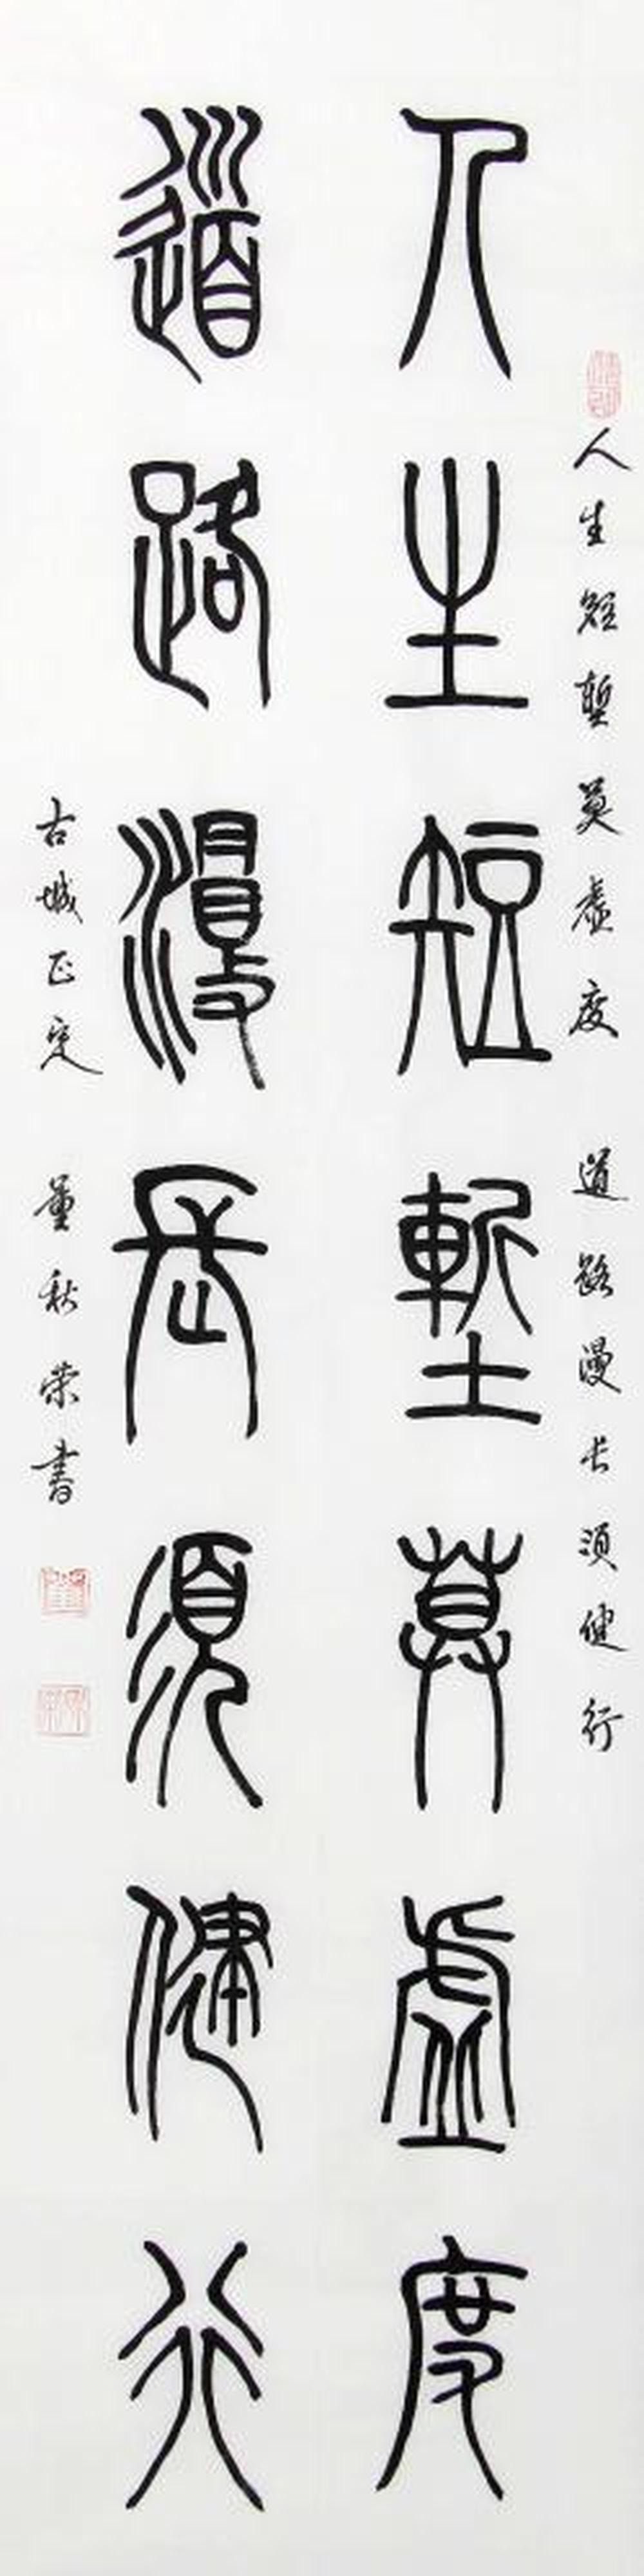 人生短塹莫虛度
道路漫長須健行
人生短塹莫虛度 道路漫长須健行
古城正定 董秋荣書